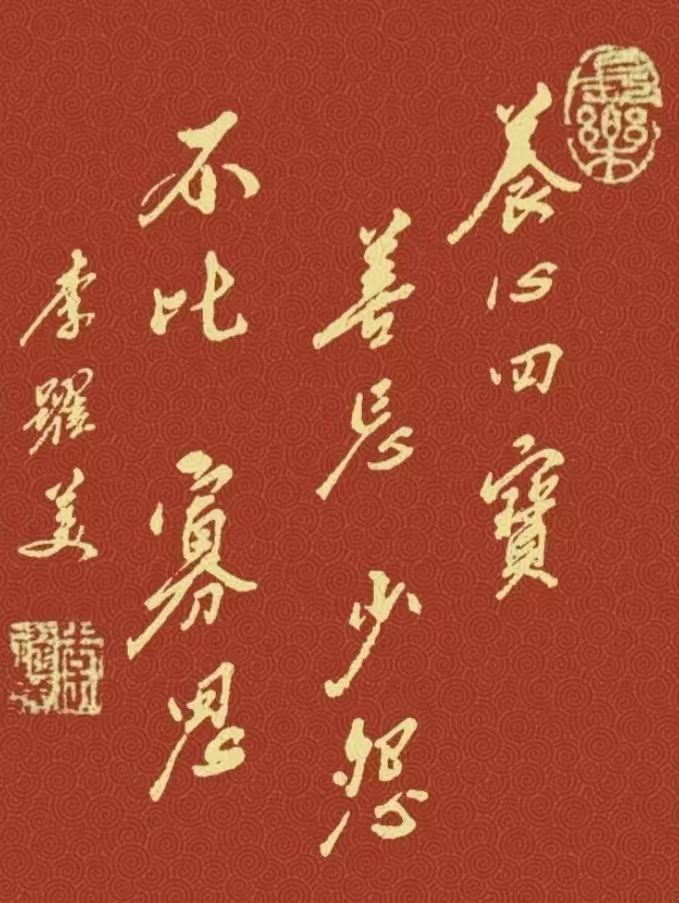 養心四寶
善忘 少怨
不比 寡思
李躍美